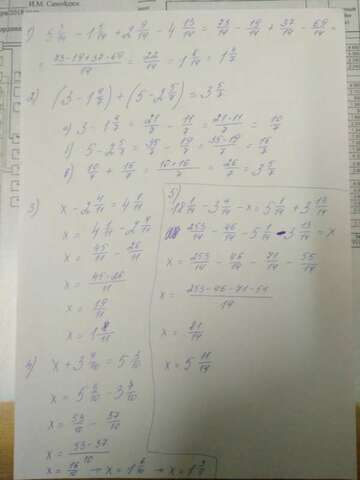 И.М. Самойлюк
1) 5 3/14 - 1 5/14 + 2 9/14 - 4 13/14 = 73/14 - 19/14 + 37/14 - 69/14 =
= 73-19+37-69/14 = 22/14 = 1 8/14 = 1 4/7
2) (3-1 4/7) + (5-2 5/7) = 3 5/7
а) 3-1 4/7 = 21/7 - 11/7 = 21-11/7 = 10/7
б) 5-2 5/7 = 35/7 - 19/7 = 35-19/7 = 16/7
в) 10/7 + 16/7 = 10+16/7 = 26/7 = 3 5/7
3) x - 2 4/11 = 4 1/11
x = 45/11 - 26/11
x = 45-26/11
x = 19/11
x = 1 8/11
4) x + 3 7/10 = 5 3/10
x = 53/10 - 37/10
x = 53-37/10
x = 16/10 → x = 1 6/10 → x = 1 3/5
5)
18 1/14 - 3 4/14 - x = 5 1/14 + 3 13/14
253/14 - 46/14 - 5 1/14 - 3 13/14 = x
x = 253/14 - 46/14 - 71/14 - 55/14
x = 253-46-71-55/14
x = 81/14
x = 5 11/14